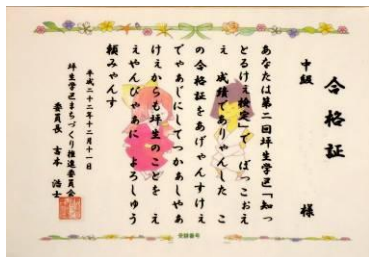 合格証
中級　　　様
あなたは第二回坪生学区「知っ
とるけぇ検定」で　ぼっこおえ
え　成績でありゃんした　こ
の合格証をあげゃんすけえ
でゃあじにして　かあしゃあ
けえからも坪生のことを　え
えやんびゃあに　よろしゅう
頼みゃんす
平成二十二年十二月十一日
坪生学区まちづくり推進委員会
委員長　吉本　浩士
受験番号